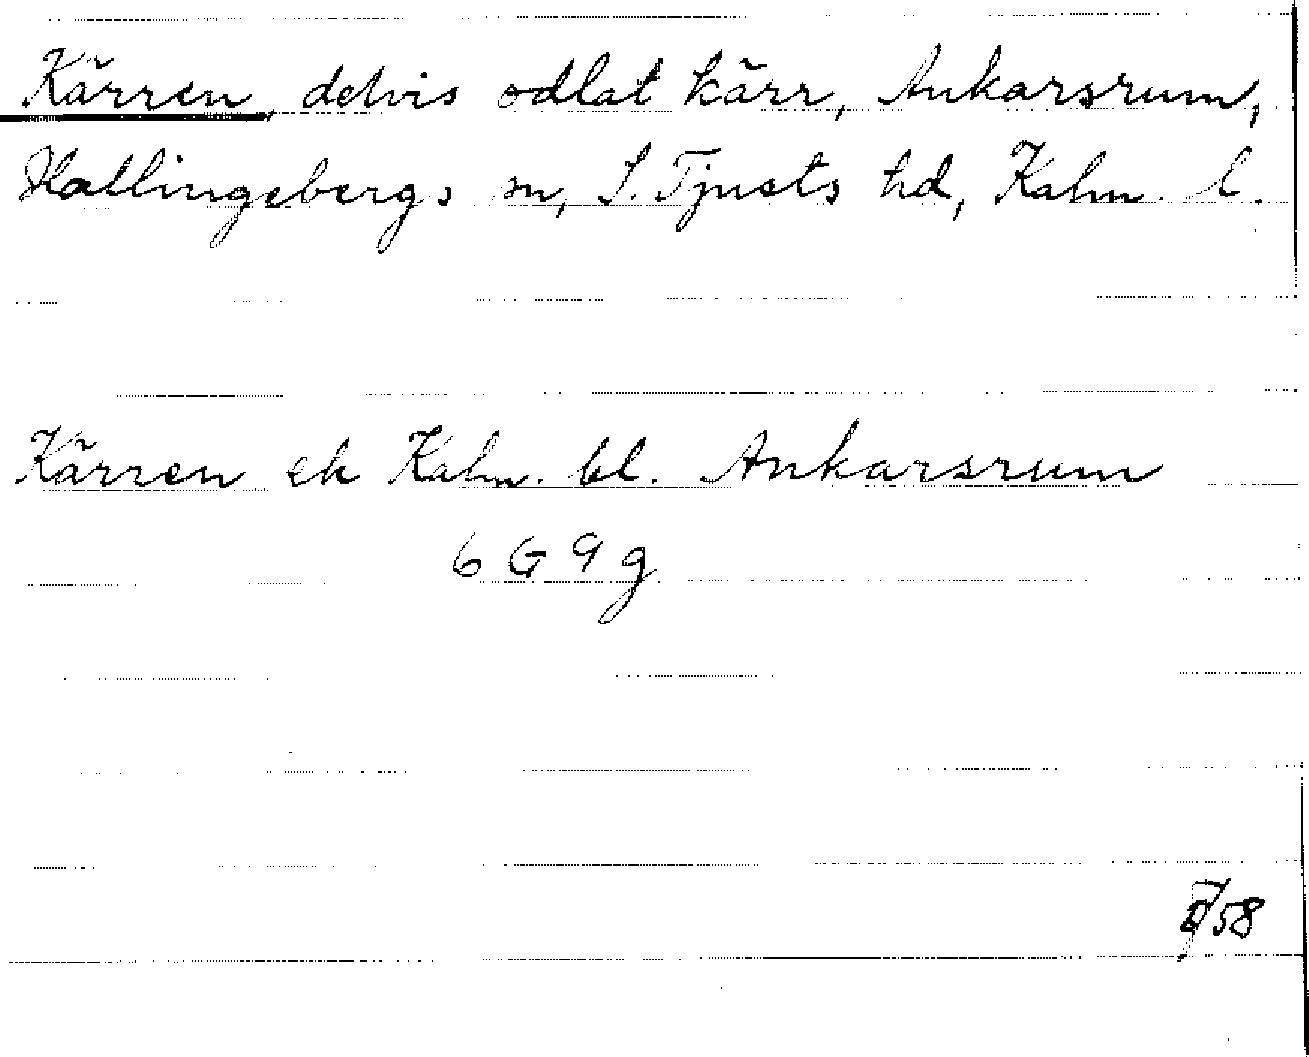 Kärren, delvis odlat kärr, Ankarsrum,
Hallingebergs sn, S. Tjusts hd, Kalm. l.
Kärren ek Kalm. bl. Ankarsrum
6 G 9 g
58